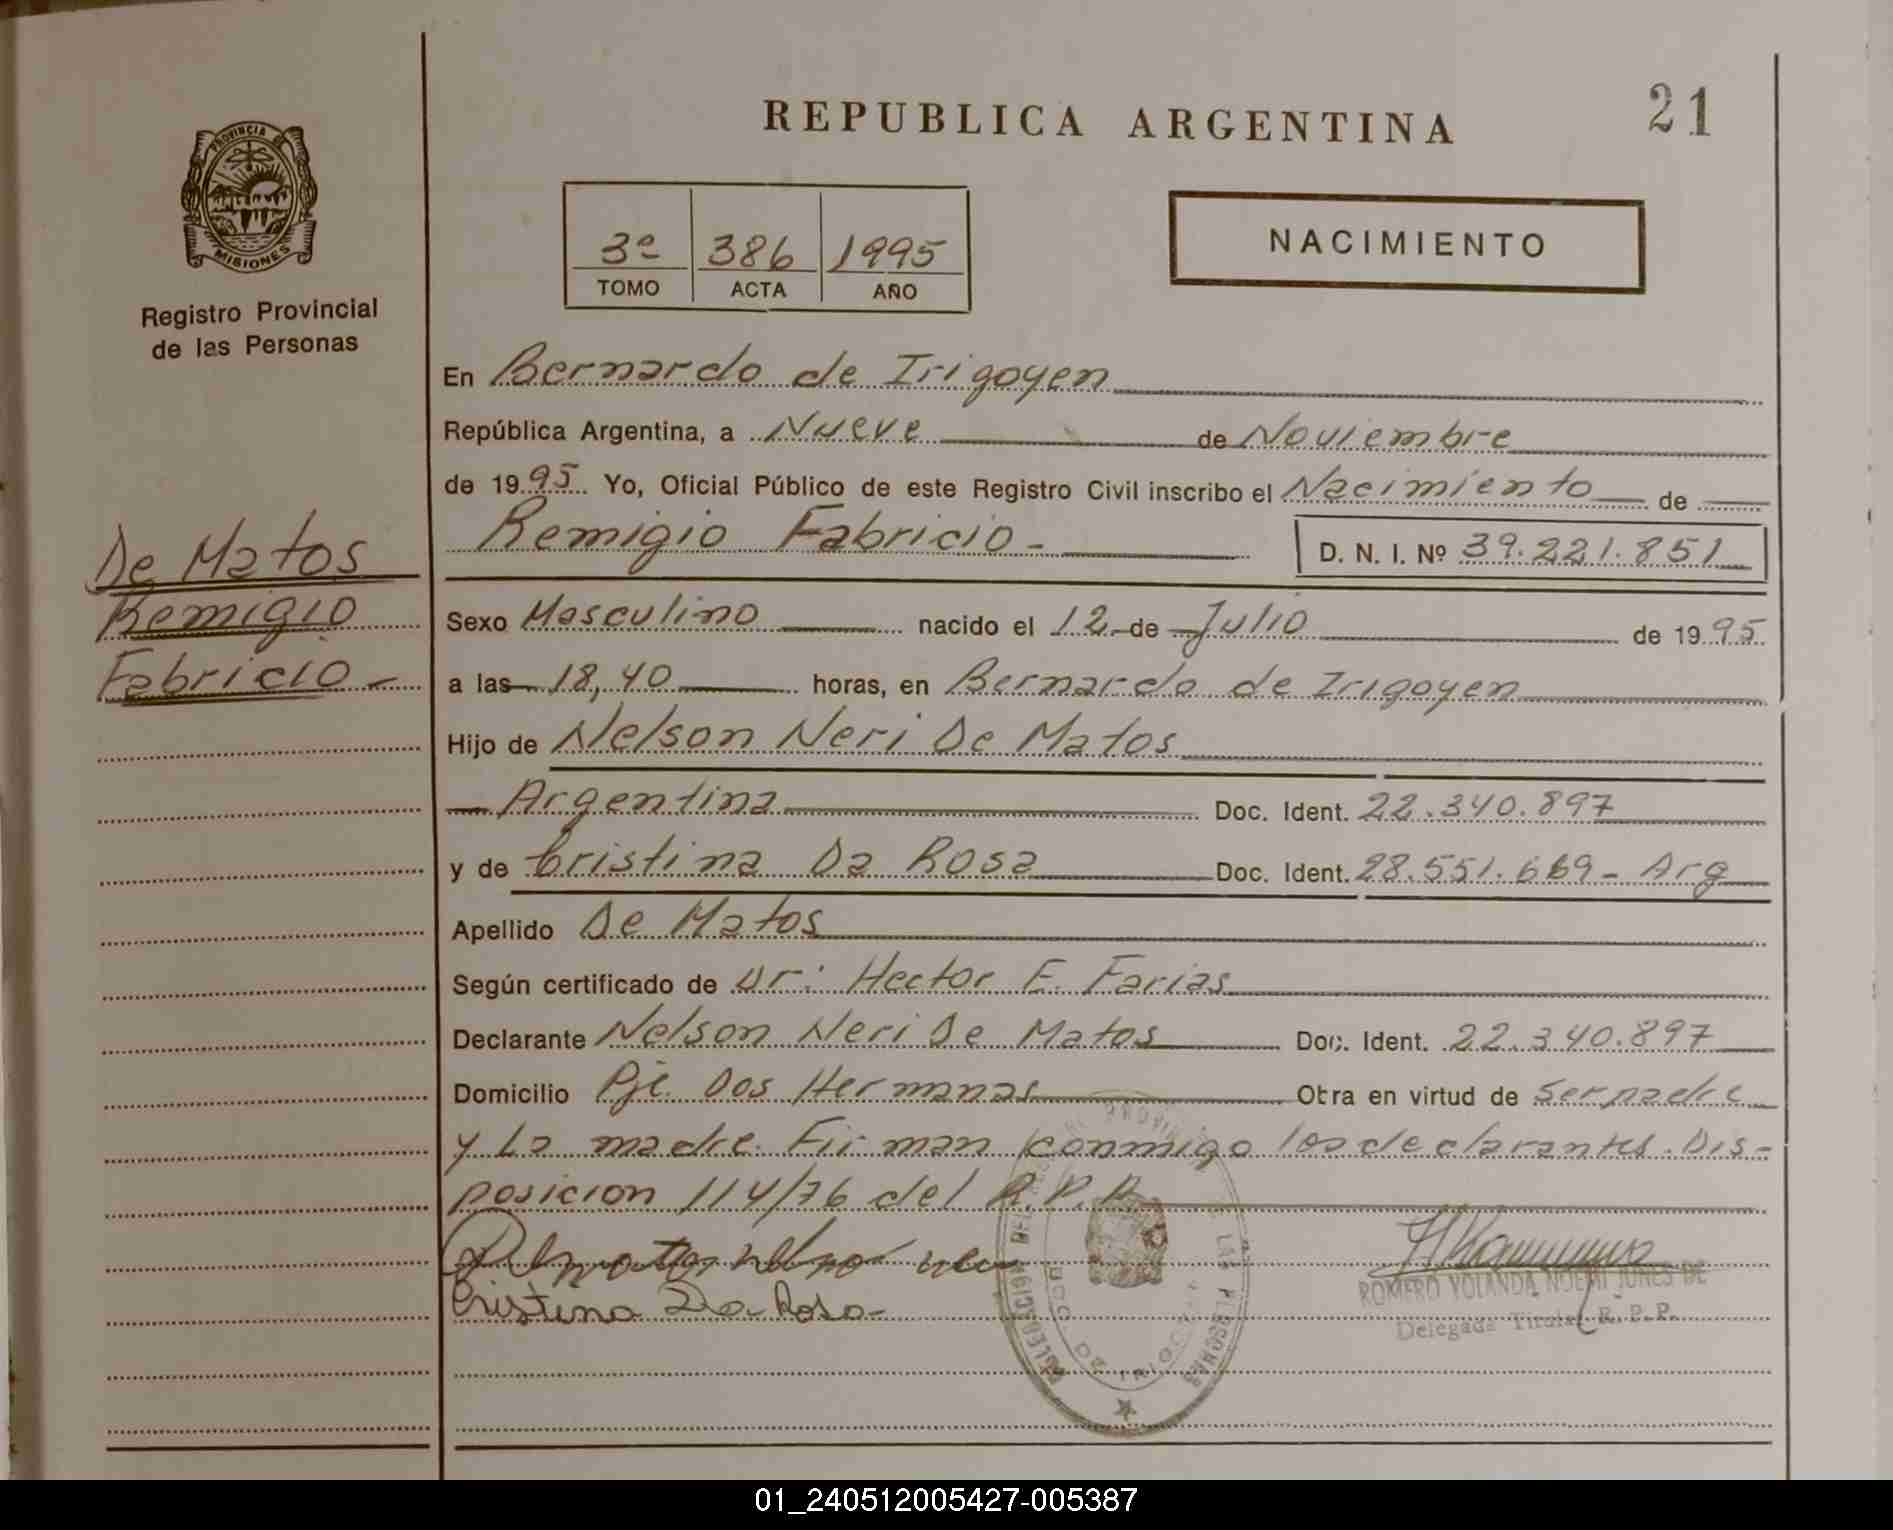 REPUBLICA ARGENTINA
21
PROVINCIA DE
MISIONES
Registro Provincial
de las Personas
3º 386 1995
TOMO ACTA AÑO
NACIMIENTO
En Bernardo de Irigoyen
República Argentina, a Nueve de Noviembre
de 1995 Yo, Oficial Público de este Registro Civil inscribo el Nacimiento de
Remigio Fabricio - D. N. I. Nº 39.221.851
De Matos
Remigio
Fabricio -
Sexo Masculino nacido el 12 de Julio de 1995
a las 18,40 horas, en Bernardo de Irigoyen
Hijo de Nelson Neri De Matos
Argentina Doc. Ident. 22.340.897
y de Cristina Da Rosa Doc. Ident. 28.551.669 - Arg
Apellido De Matos
Según certificado de Dr: Hector E. Farias
Declarante Nelson Neri De Matos Doc. Ident. 22.340.897
Domicilio Pje. Dos Hermanas Obra en virtud de Ser padre
y La madre. Firman conmigo los declarantes. Dis-
posicion 114/76 del R.P.P.
Cristina Da Rosa
ROMERO YOLANDA NOEMI JUNES DE
Delegada Titular R. P. P.
01_240512005427-005387